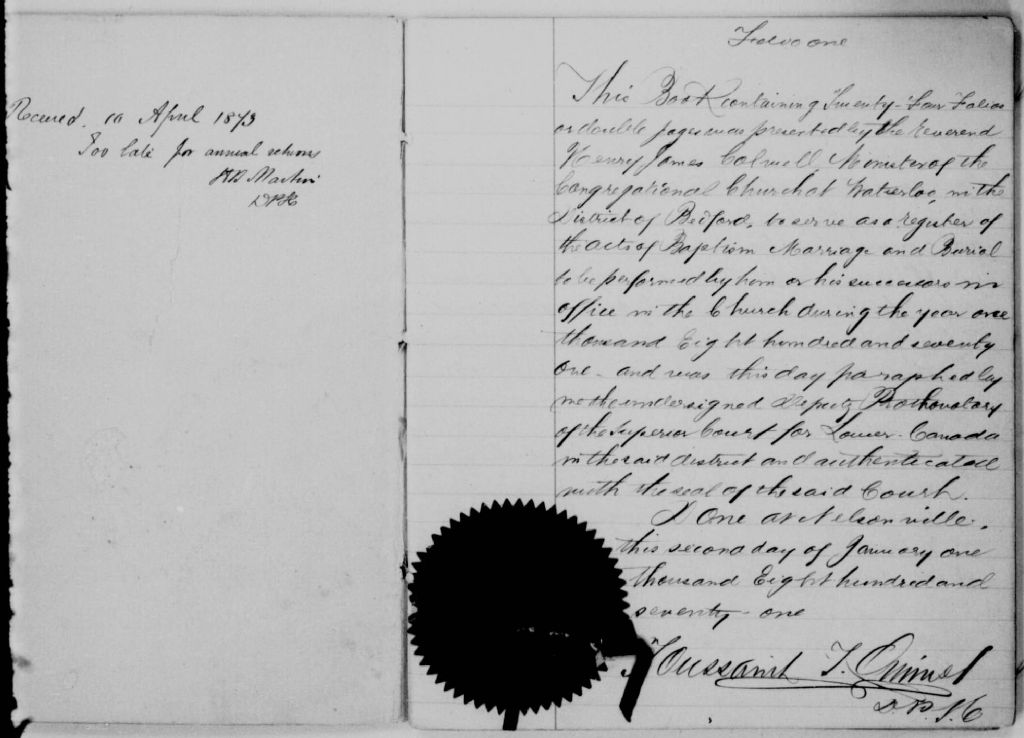 Received 10 April 1873
Too late for annual return
Folio one
This Book containing Twenty-Four Folios
or double pages was presented by the Reverend
Henry James Colwell, Minister of the
Congregational Church at Waterloo, in the
District of Bedford, to serve as a register of
the acts of Baptism Marriage and Burial
to be performed by him or his successors in
office in the Church during the year one
thousand Eight hundred and seventy
one - and was this day paraphed by
me the undersigned Deputy Prothonotary
of the Superior Court for Lower-Canada
in the said district and authenticated
with the seal of the said Court.
Done at Nelsonville,
this second day of January one
thousand Eight hundred and
seventy - one
Toussaint T.
D.P.S.C